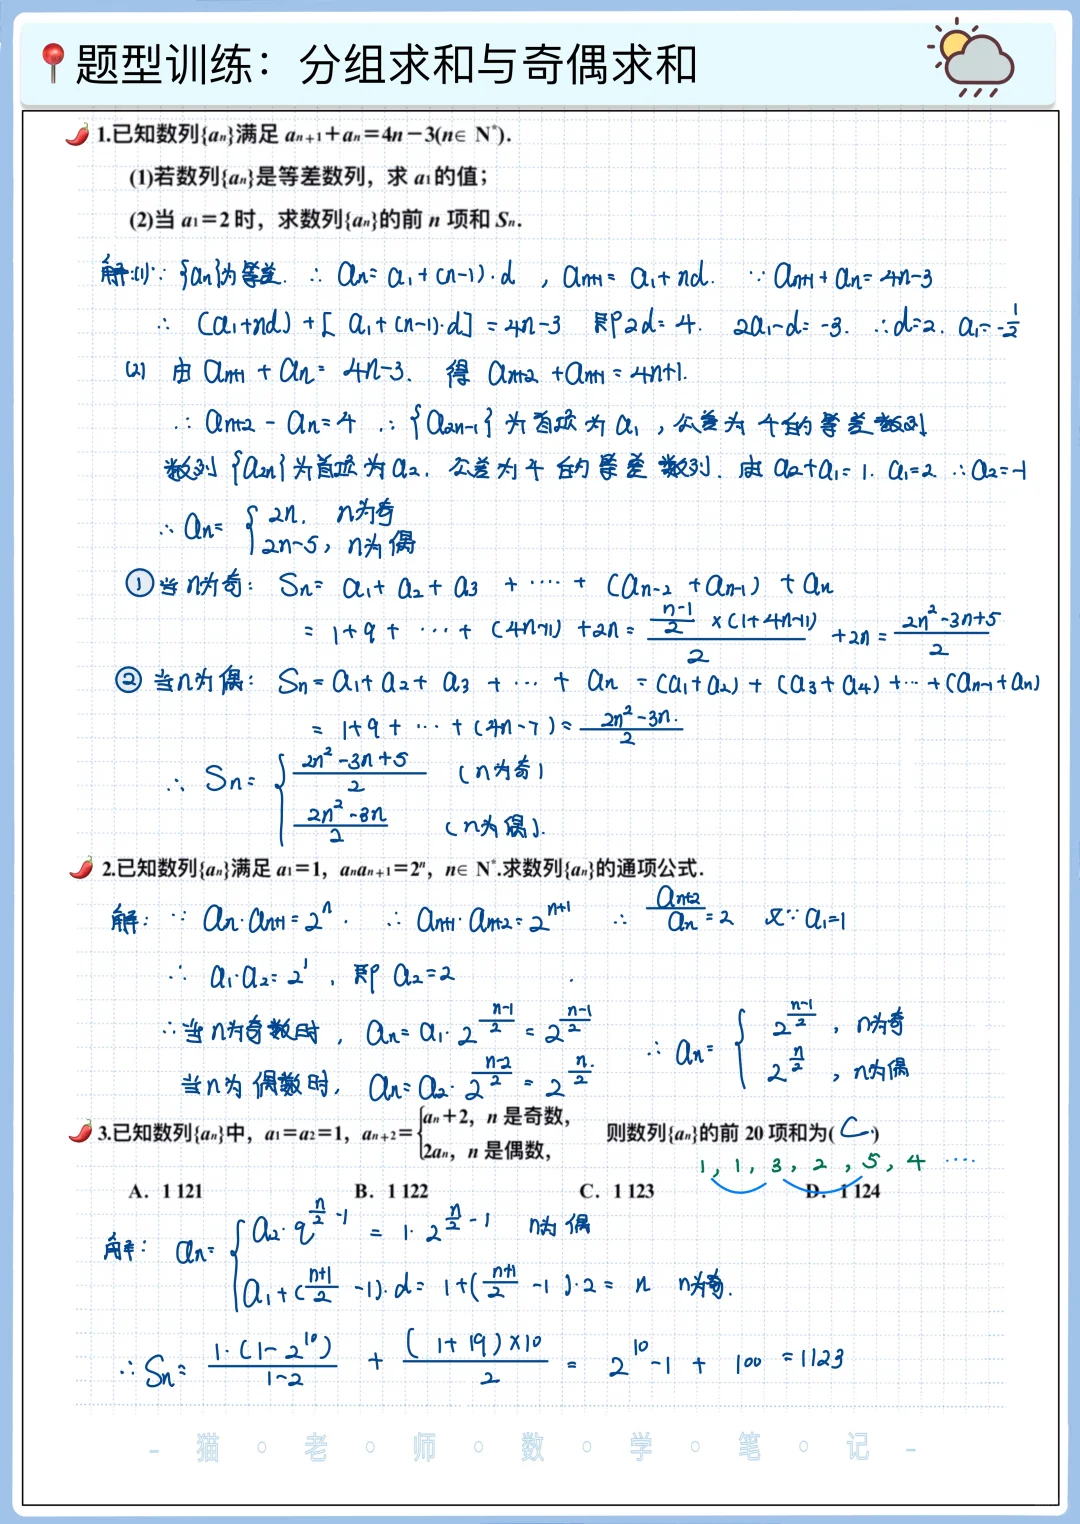 题型训练：分组求和与奇偶求和
1.已知数列{aₙ}满足 aₙ₊₁＋aₙ＝4n－3(n∈ N*).
(1)若数列{aₙ}是等差数列，求 a₁的值；
(2)当 a₁＝2 时，求数列{aₙ}的前 n 项和 Sₙ.
解:(1)∵ {an}为等差. ∴ an= a₁+(n-1)·d , an+1= a₁+nd. ∵ an+1+an=4n-3
∴ (a₁+nd)+[a₁+(n-1)·d]=4n-3 即2d=4. 2a₁-d=-3. ∴d=2. a₁=-1/2
(2) 由 an+1+an=4n-3. 得 an+2+an+1=4n+1.
∴ an+2-an=4 ∴{a2n-1}为首项为a₁, 公差为4的等差数列
数列{a2n}为首项为a₂. 公差为4的等差数列. 由a₂+a₁=1. a₁=2 ∴a₂=-1
∴ an= { 2n, n为奇
2n-5, n为偶
① 当n为奇: Sn= a₁+a₂+a₃+····+(an-2+an-1)+an
= 1+9+···+(4n-11)+2n= (n-1)/2×(1+4n-11)/2 +2n = (2n²-3n+5)/2
② 当n为偶: Sn=a₁+a₂+a₃+···+an =(a₁+a₂)+(a₃+a₄)+···+(an-1+an)
= 1+9+···+(4n-7)= (2n²-3n.)/2
∴ Sn= { (2n²-3n+5)/2 (n为奇)
(2n²-3n)/2 (n为偶).
2.已知数列{aₙ}满足 a₁＝1，aₙaₙ₊₁＝2ⁿ，n∈ N*.求数列{aₙ}的通项公式.
解: ∵ an·an+1=2ⁿ. ∴ an+1·an+2=2ⁿ⁺¹ ∴ an+2/an=2 又∵a₁=1
∴ a₁·a₂=2¹, 即 a₂=2
∴当n为奇数时, an=a₁·2^((n-1)/2)=2^((n-1)/2)
当n为偶数时, an=a₂·2^((n-2)/2)=2^(n/2).
∴ an= { 2^((n-1)/2), n为奇
2^(n/2), n为偶
3.已知数列{aₙ}中，a₁＝a₂＝1，aₙ₊₂＝{aₙ＋2，n 是奇数，
2aₙ，n 是偶数，
则数列{aₙ}的前 20 项和为( C )
1, 1, 3, 2, 5, 4 ····
A．1 121 B．1 122 C．1 123 D．1 124
解: an= { a₂·q^(n/2-1) = 1·2^(n/2-1) n为偶
a₁+((n+1)/2-1)·d= 1+((n+1)/2-1)·2= n n为奇.
∴ Sn= 1·(1-2¹⁰)/(1-2) + (1+19)×10/2 = 2¹⁰-1+100 =1123
- 猫 · 老 · 师 · 数 · 学 · 笔 · 记 -